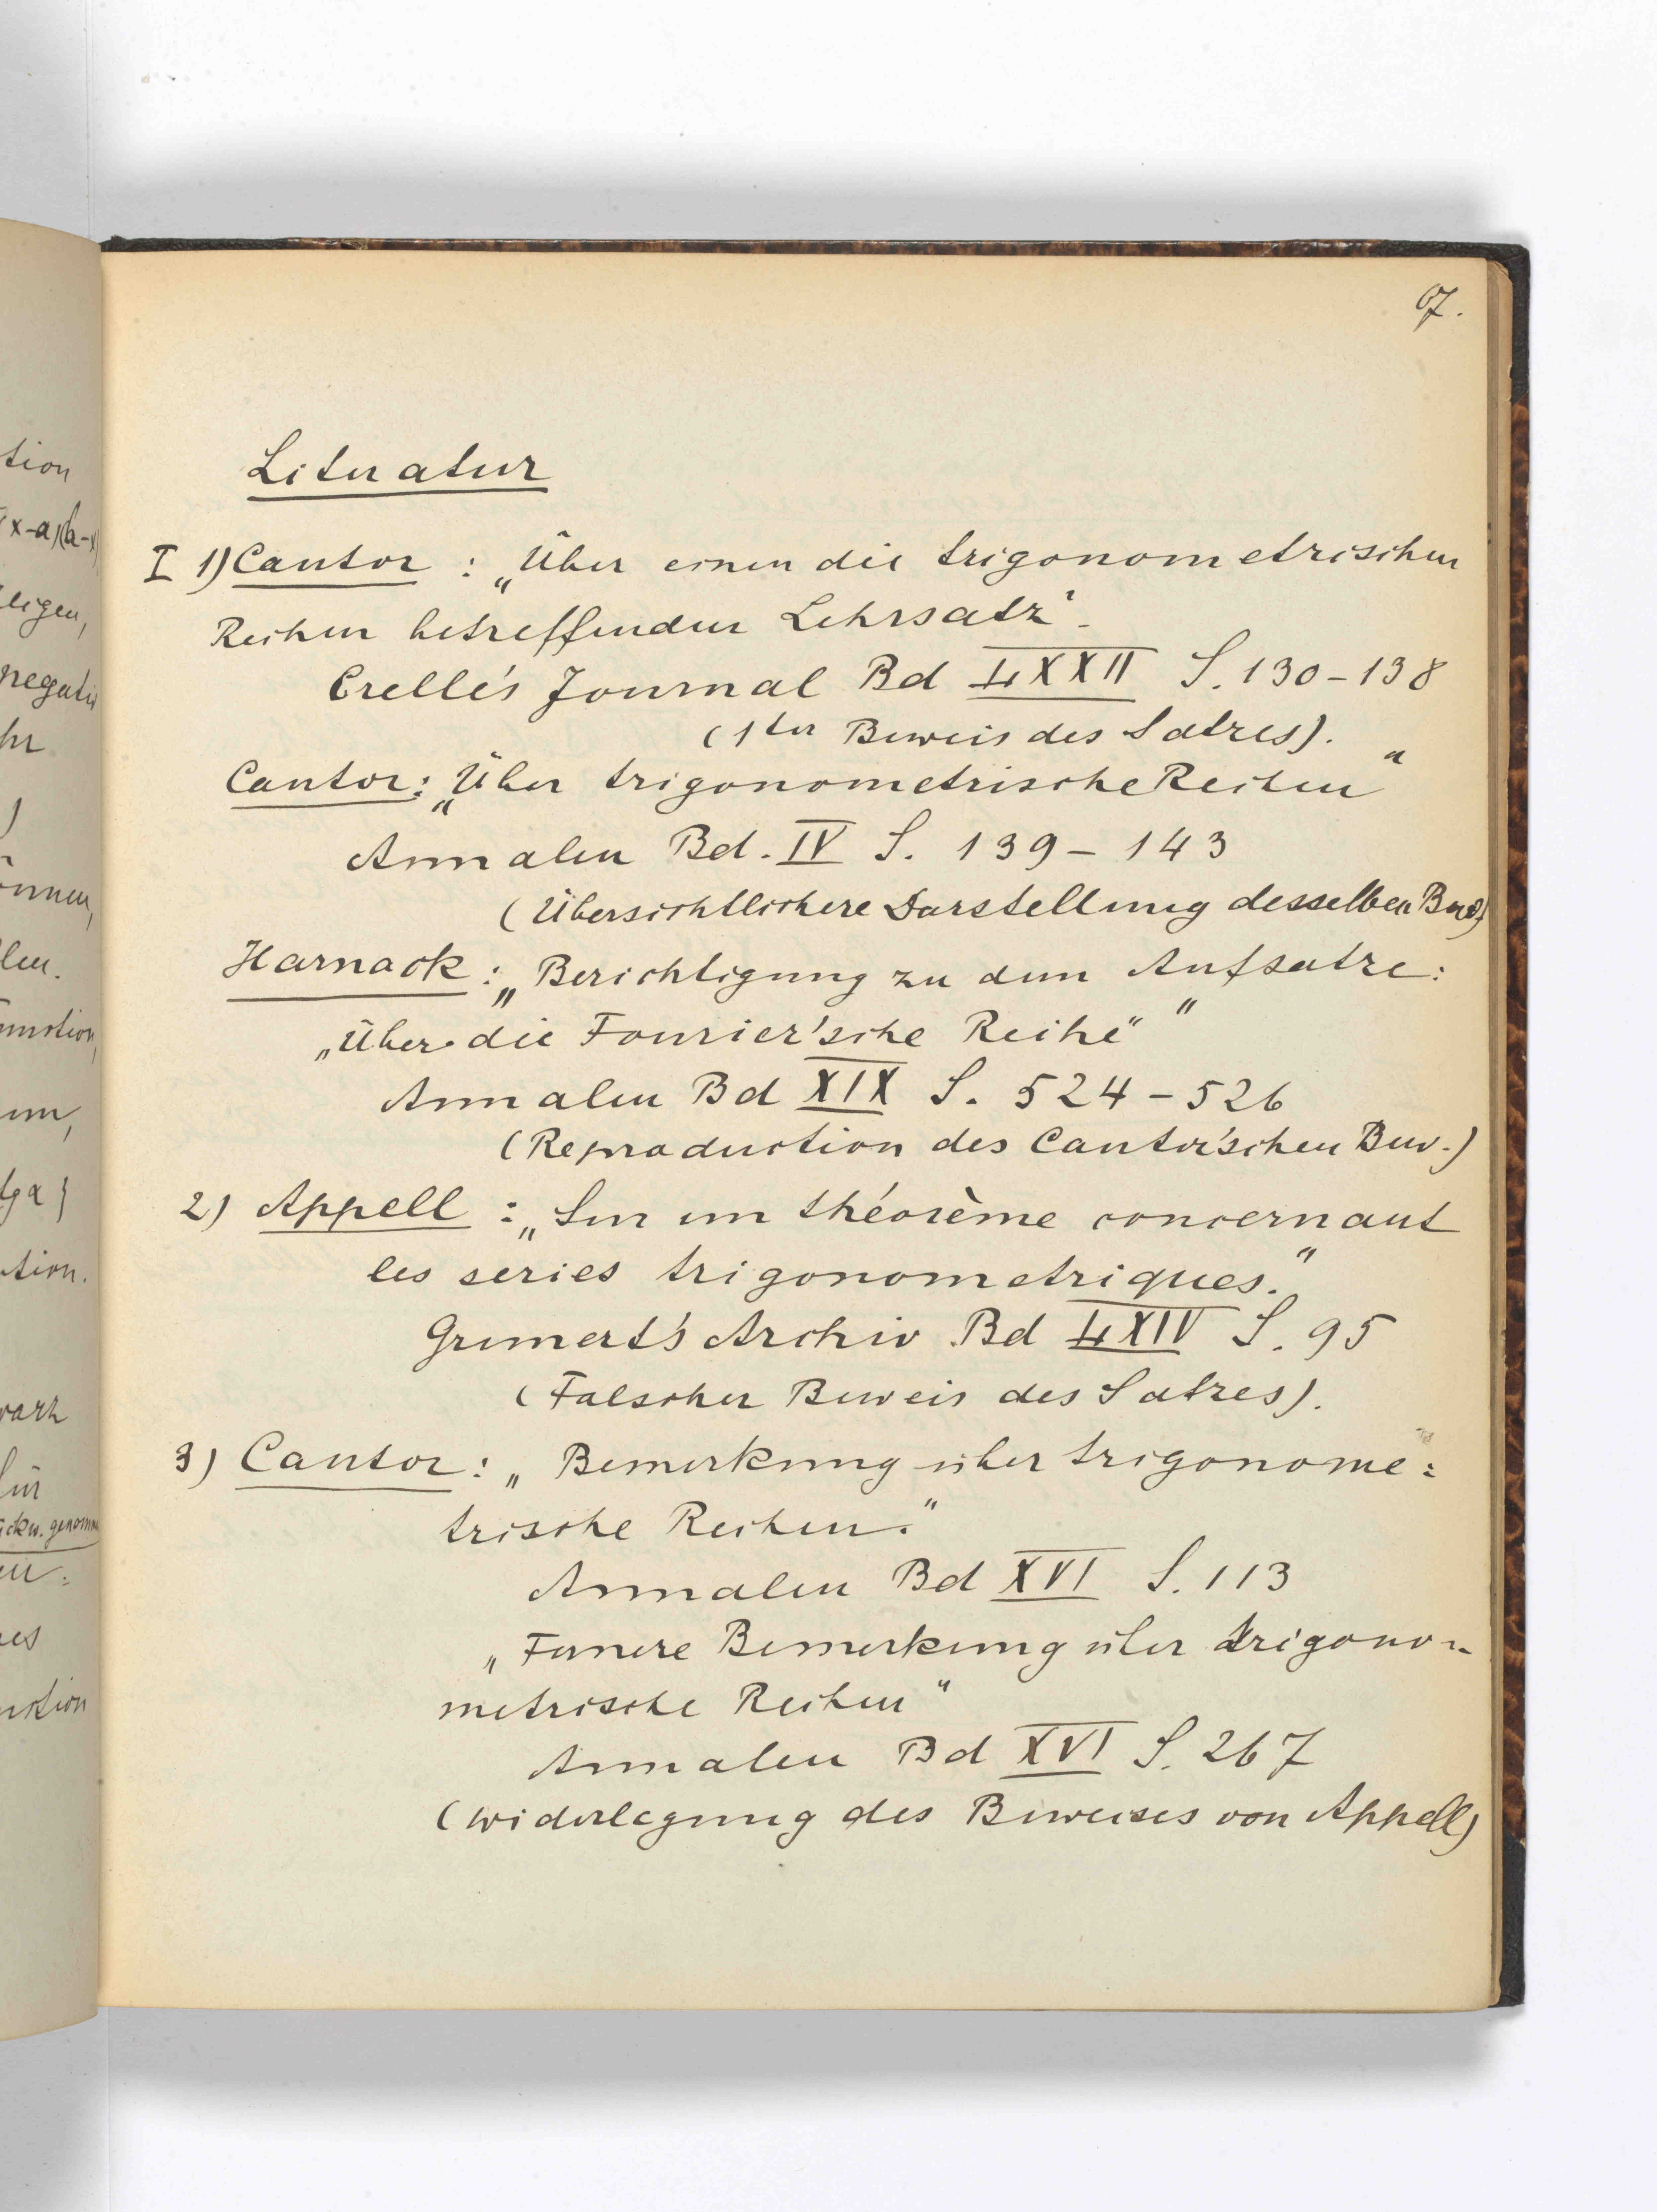 67.
Literatur
I 1) Cantor : „Über einen die trigonometrischen
Reihen betreffenden Lehrsatz“.
Crelle's Journal Bd LXXII S. 130-138
(1ter Beweis des Satzes).
Cantor: „Über trigonometrische Reihen“
Annalen Bd. IV S. 139-143
(Übersichtlichere Darstellung desselben Bws)
Harnack : „Berichtigung zu dem Aufsatze:
„Über die Fourier'sche Reihe“ “
Annalen Bd XIX S. 524-526
(Reproduction des Cantor'schen Bew.)
2) Appell : „Sur un théorème concernant
les series trigonometriques.“
Grunert's Archiv Bd LXIV S. 95
(Falscher Beweis des Satzes).
3) Cantor: „Bemerkung über trigonome=
trische Reihen.“
Annalen Bd XVI S. 113
„Fernere Bemerkung über trigono=
metrische Reihen“
Annalen Bd XVI S. 267
(Widerlegung des Beweises von Appell)
tion
(x-a)(b-x)
ligen,
negativ
hr
)
önnen,
len.
unction,
um,
tion.
für
rückw. genomm
en.
es
nction